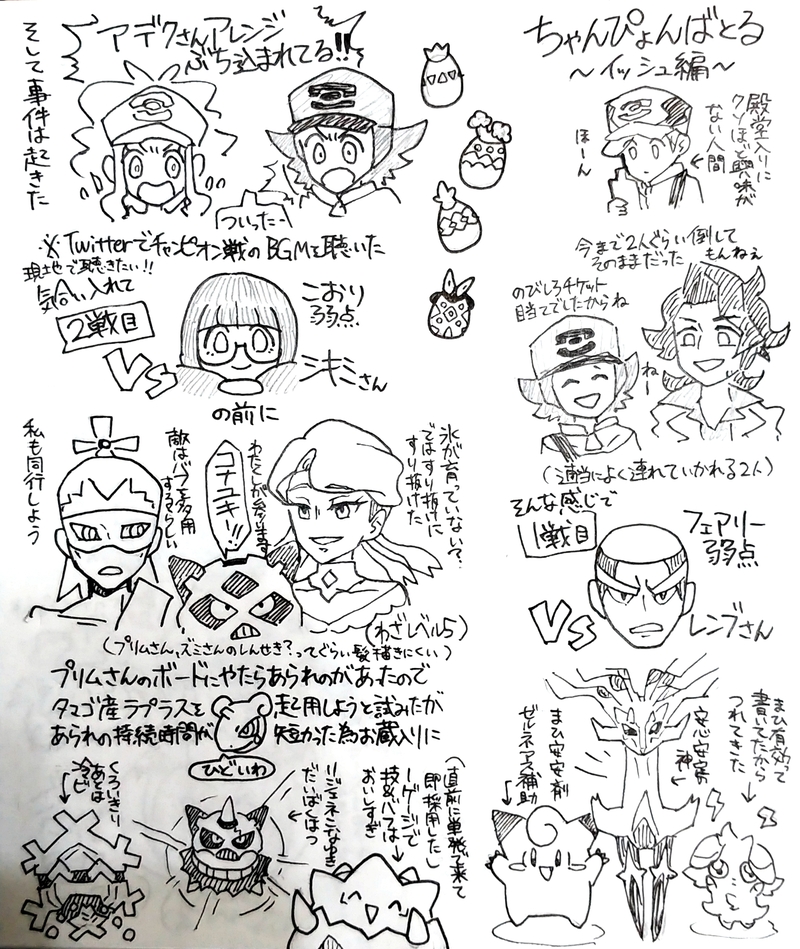 ちゃんぴょんばとる
～イッシュ編～
殿堂入りに
クソほど興味が
ない人間
ほーん
今まで2人ぐらい倒して
そのままだった
もんねぇ
のびしろチケット
目当てでしたからね
ねー
(適当によく連れていかれる2人)
そんな感じで
1戦目
フェアリー
弱点
Vs
レンブさん
まひ有効って
書いてたから
つれてきた
安心安定
神
まひ安定剤
ゼルネアス補助
アデクさんアレンジ
ぶち込まれてる!!
そして事件は起きた
ついったー
※Twitterでチャンピオン戦のBGMを聴いた
現地で聴きたい!!
気合い入れて
2戦目
Vs
こおり
弱点
シキミさん
の前に
氷が育っていない?
ではすり抜けに
すり抜けた
わたくしが参ります
コナユキー!!
敵はバフを多用
するらしい
私も同行しよう
(わざレベル5)
(プリムさん、ズミさんのしんせき?ってぐらい髪描きにくい)
プリムさんのボードにやたらあられのがあったので
タマゴ産ラプラスを起用しようと試みたが
あられの持続時間が短かった為お蔵入りに
ひどいわ
(直前に単発で来て
即採用した)
1ゲージで
技&バフは
おいしすぎ
だいばくはつ
くろいきり
あとは
冷ビ